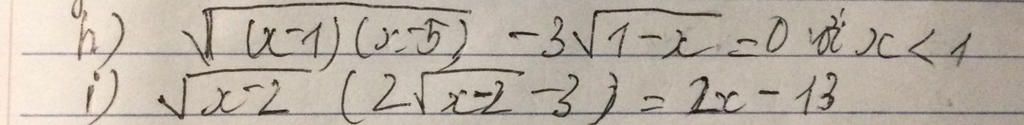 h) √(x-1)(x-5) - 3√1-x = 0 với x < 1
i) √x-2 (2√x-2 - 3) = 2x - 13